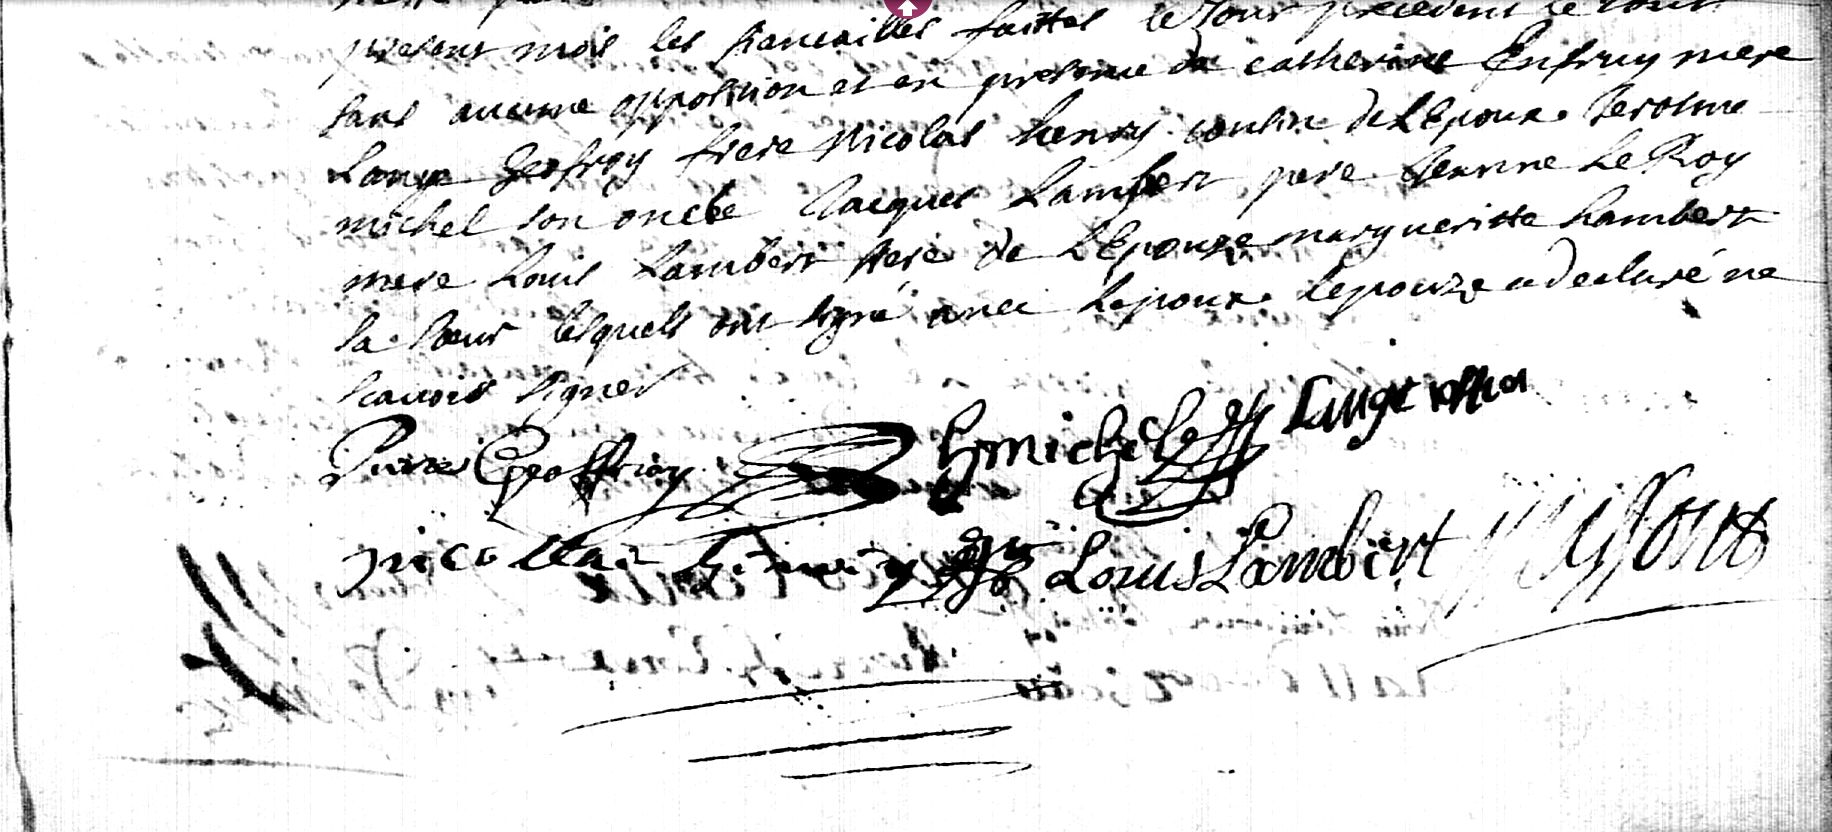 present mois les fiancailles faittes le Jour precedent le tout
sans aucune opposition et en presence de catherine Enfruy mere
Lange Geofroy frere Nicolas henry cousin de L'Epoux Jerosme
michel son oncle Jacques Lambert pere Jeanne Le Roy
mere Louis Lambert frere de L'Epouze margueritte Lambert
sa soeur lesquels ont signé avec Lepoux Lepouze a declaré ne
scavoir signer
Pierre Geoffroy h michel Lange
nicollas henry Louis Lambert